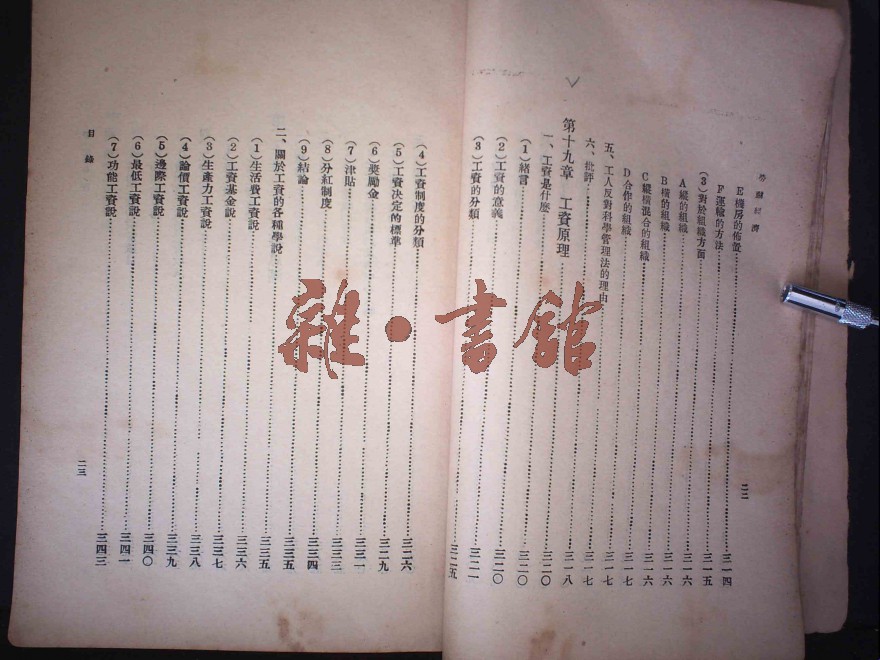 勞動經濟
E機房的佈置 三一四
F運輸的方法 三一五
(3)對於組織方面 三一六
A縱的組織 三一六
B橫的組織 三一六
C縱橫混合的組織 三一七
D合作的組織 三一七
五、工人反對科學管理法的理由 三一七
六、批評 三一八
第十九章 工資原理 三二〇
一、工資是什麼 三二〇
(1)緒言 三二〇
(2)工資的意義 三二一
(3)工資的分類 三二五
二二
(4)工資制度的分類 三二六
(5)工資決定的標準 三二九
(6)獎勵金 三三一
(7)津貼 三三三
(8)分紅制度 三三四
(9)結論 三三五
二、關於工資的各種學說 三三五
(1)生活費工資說 三三六
(2)工資基金說 三三七
(3)生產力工資說 三三八
(4)論價工資說 三三九
(5)邊際工資說 三四〇
(6)最低工資說 三四一
(7)功能工資說 三四三
目錄
二三
雜·書館